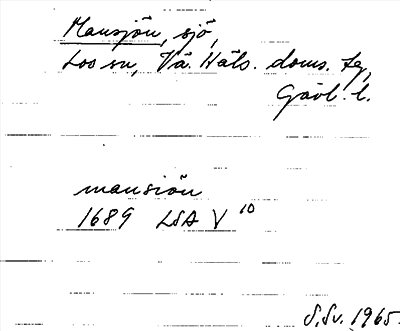 Mansjön, sjö,
Loos sn, Vä. Häls. doms. tg,
Gävl. l.
mansiön
1689 LSA V 10
S.Sv. 1965.